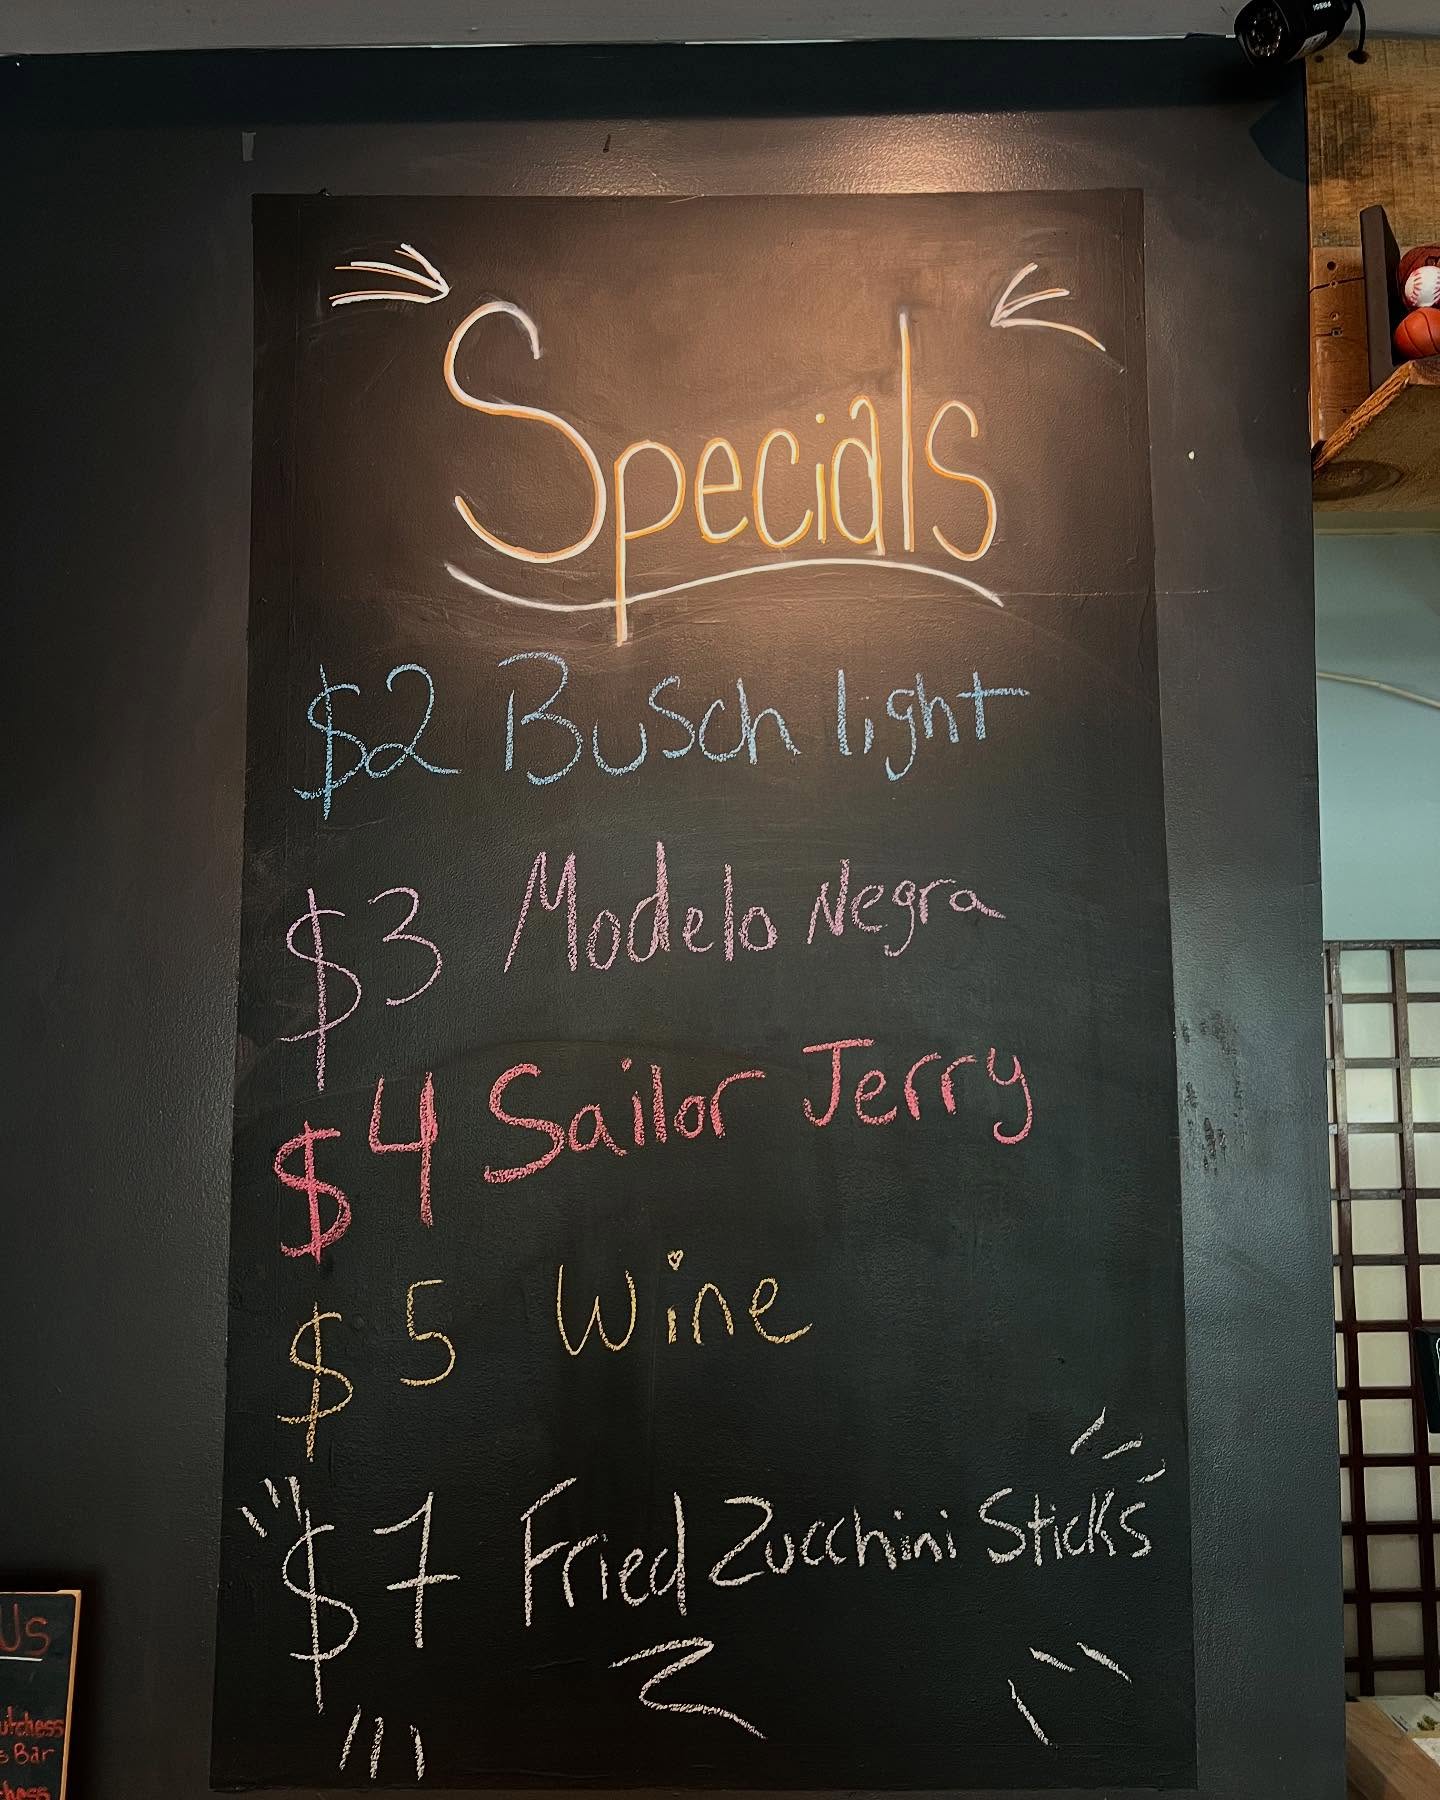 Specials
$2 Busch light
$3 Modelo Negra
$4 Sailor Jerry
$5 Wine
$7 Fried Zucchini Sticks
Us
utchess
s Bar